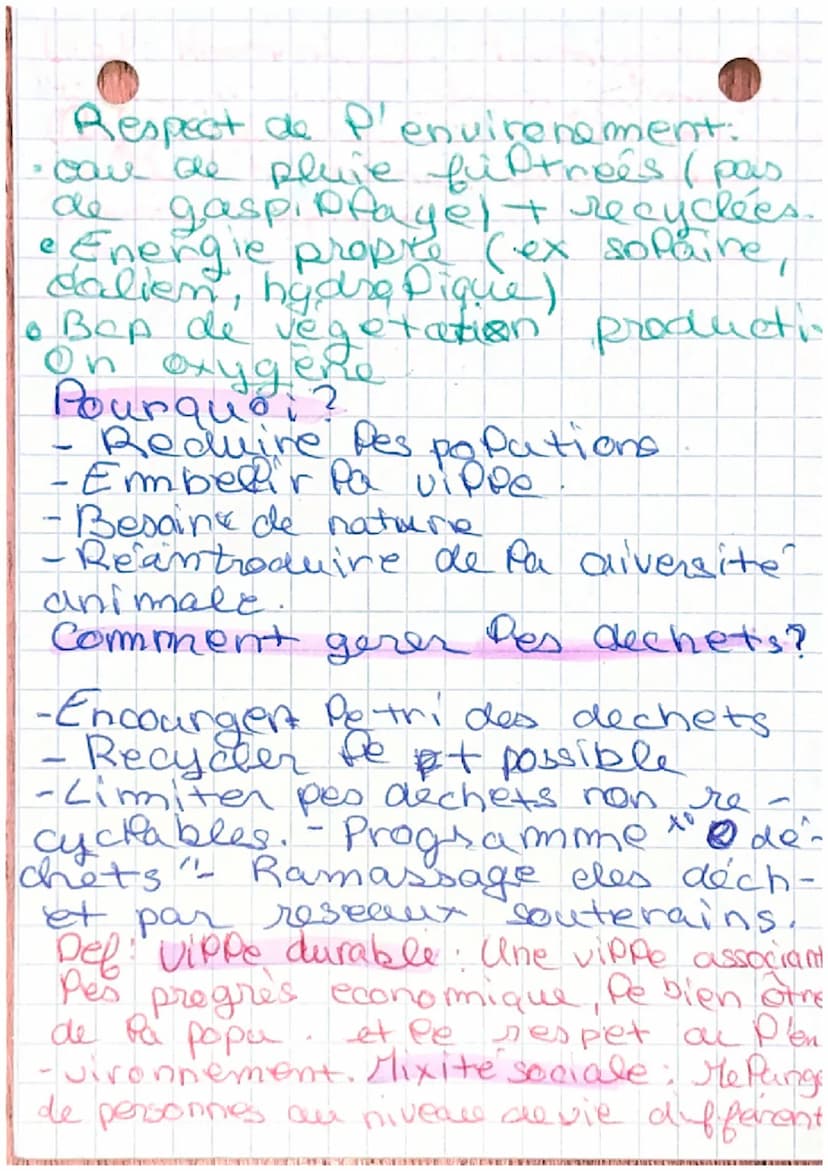 Respect de l'environement:
• eau de pluie filtreés (pas
de gaspillage) + recyclées.
• Energie propre (ex solaire,
éolien, hydrolique)
• Bcp de végétation producti-
on oxygène
Pourquoi?
- Reduire les polutions.
- Embellir la ville.
- Besoin de nature
- Réintroduire de la diversité
animale.
Comment gerer les dechets?
- Encourager le tri des dechets
- Recycler le + possible
- Limiter les dechets non re-
cyclables. - Programme "0 dé-
chets" - Ramassage des déch-
et par reseaux souterains.
Def: Ville durable: Une ville associant
les progrès economique, le bien être
de la popu. et le respet de l'en
-vironnement. Mixité sociale: Melange
de personnes au niveau de vie différent